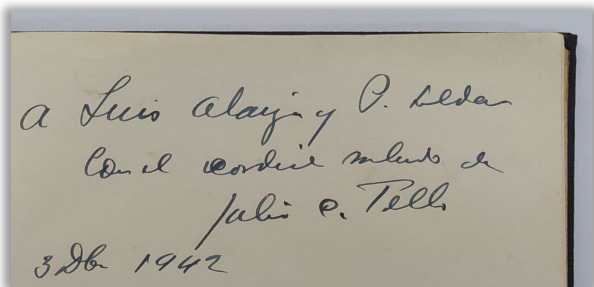 A Luis Alayza y P. Soldan
Con el cordial saludo de
Julio C. Tello
3 Dbr 1942